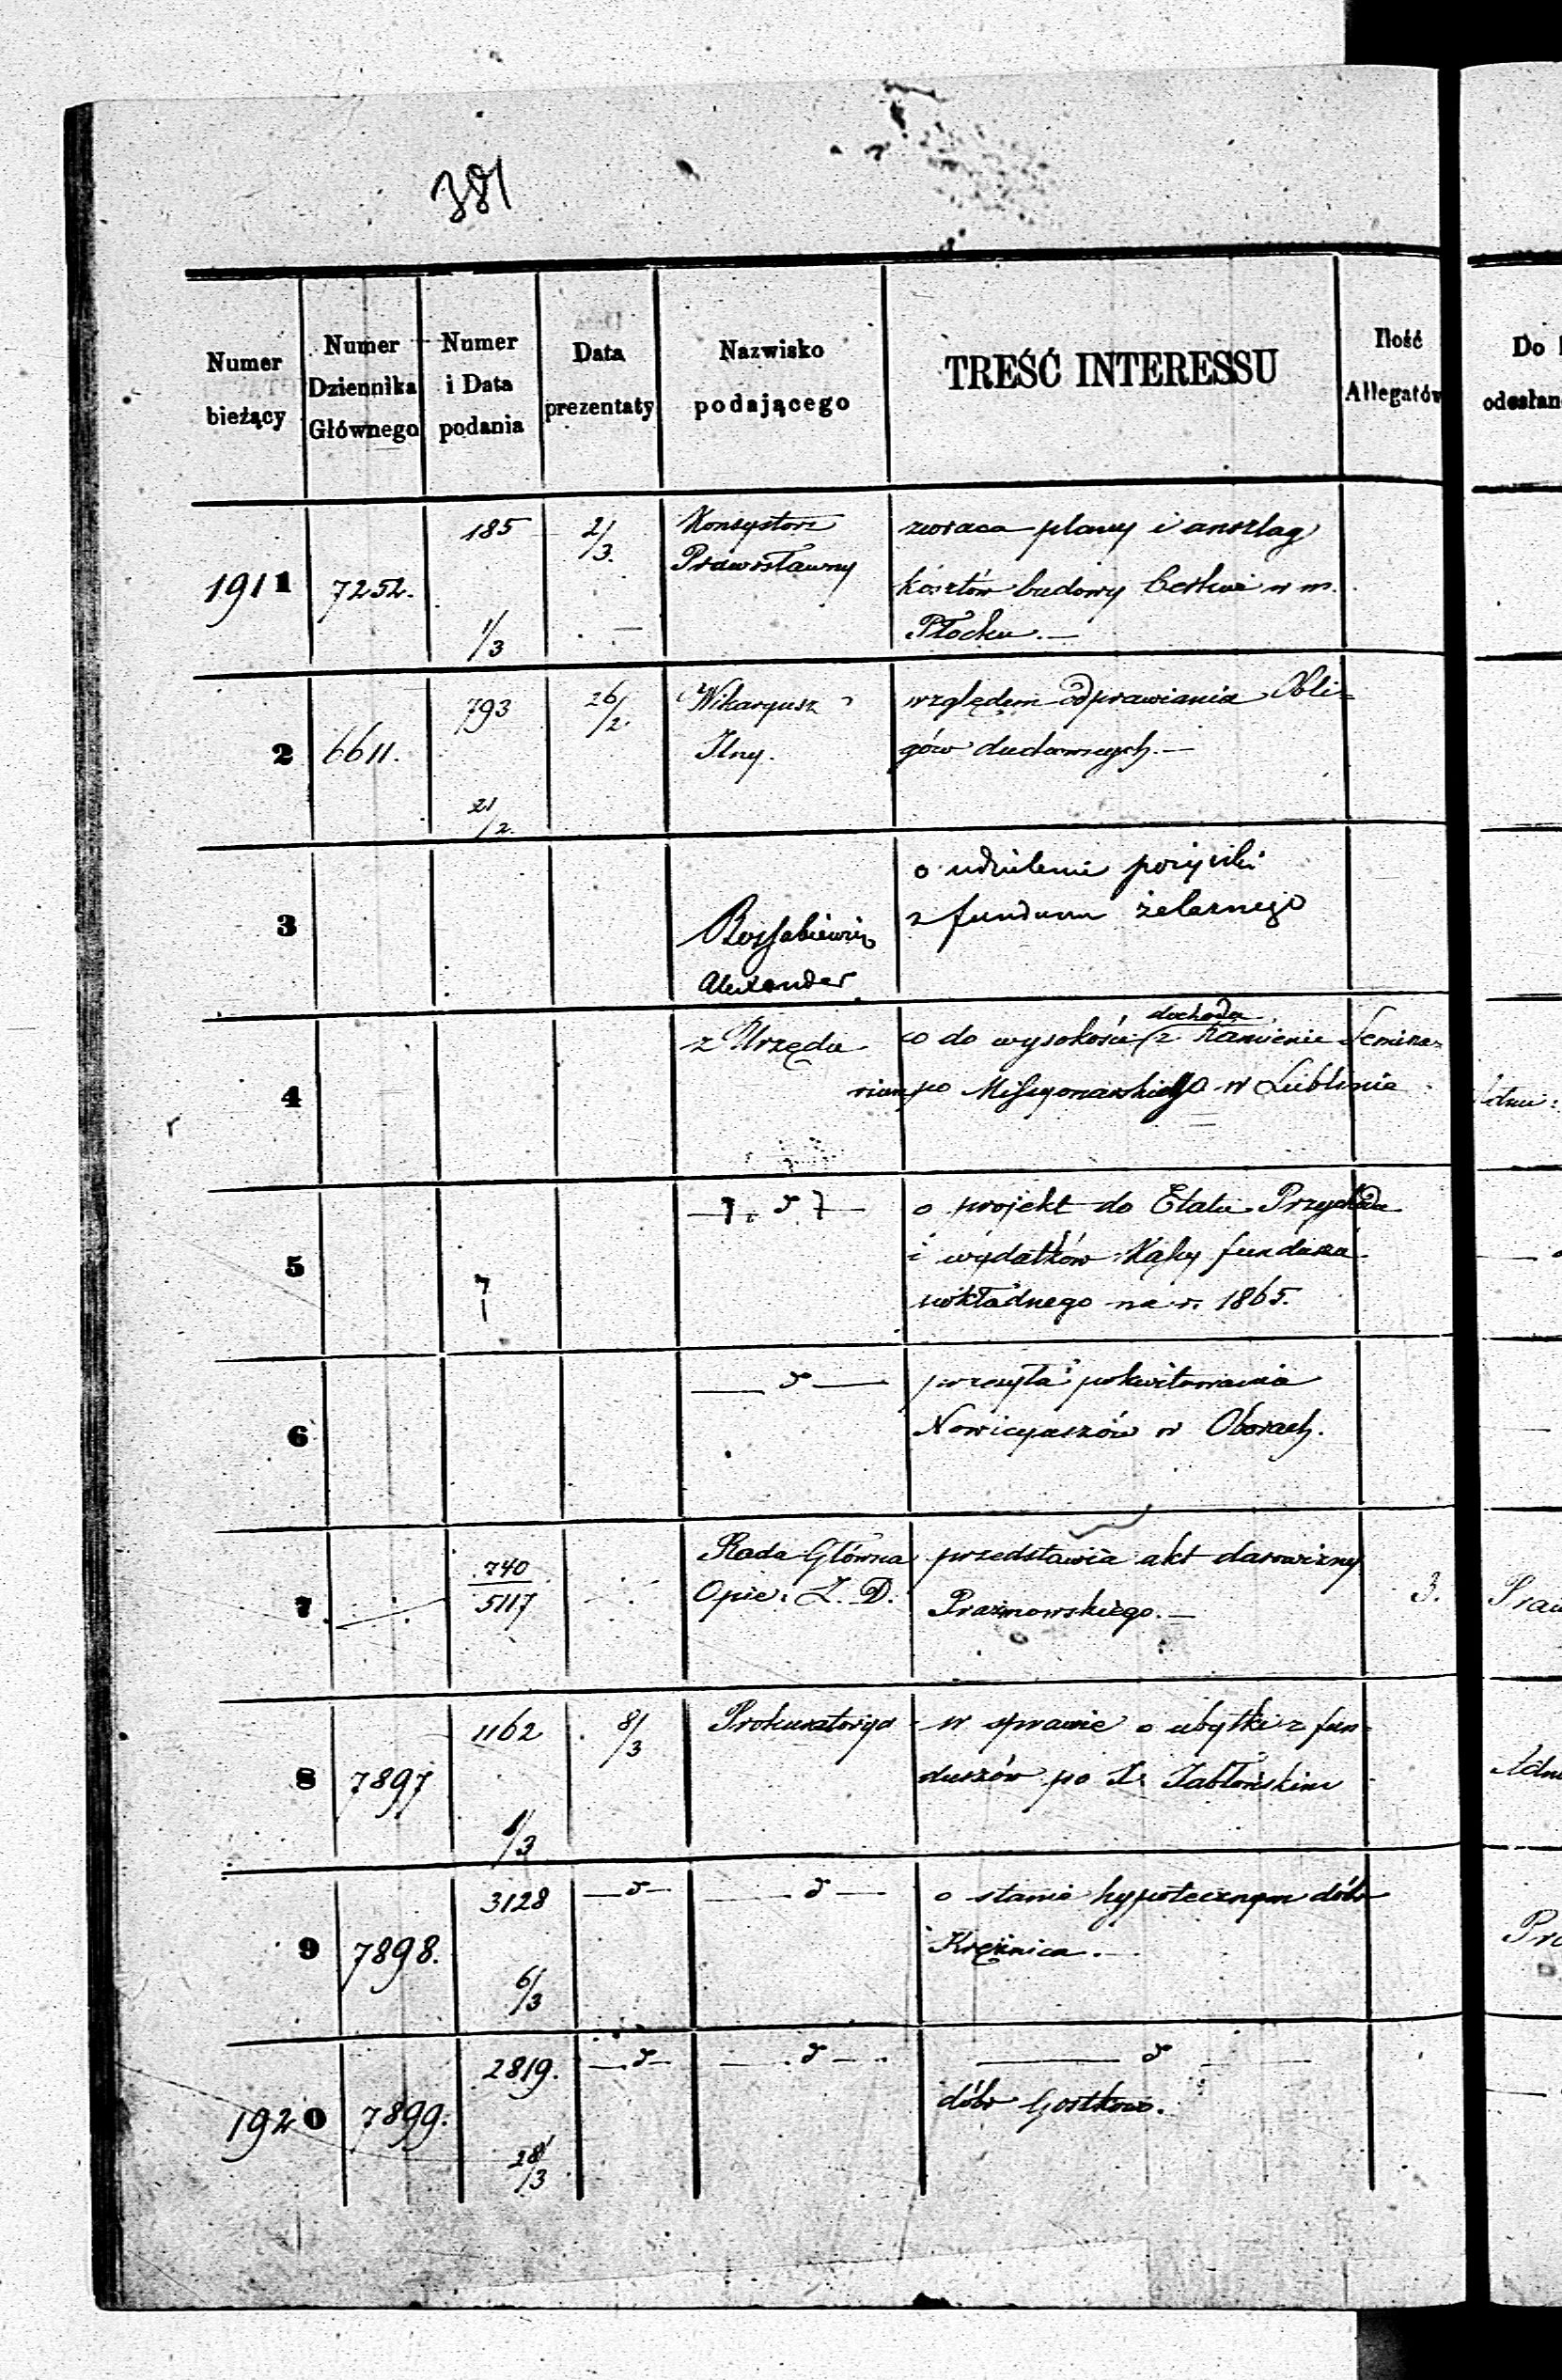 381
Numer bieżący
Numer Dziennika Głównego
Numer i Data podania
Data prezentaty
Nazwisko podającego
TREŚĆ INTERESSU
Ilość Allegatów
Do
odesłan
1911 7252. 185 1/3 2/3. Konsystorz
Prawosławny
zwraca plany i anszlag
kosztów budowy Cerkwi w m.
Płocku.—
2 6611. 793 21/2. 26/2. Wikaryusz
Ilny.
względem odprawiania Obli=
gów duchownych.—
3
Alexander
o udzielenie pożyczki
z funduszu żelaznego
4 z Urzędu
dochodu
co do wysokości z Kamienic Semina=
rium po Missyonarskiego w Lublinie
5 — d —
o projekt do Etatu Przychodu
i wydatków Kassy fundusza
wkładnego na r. 1865.
6 — d —
przesyła pokwitowania
Nowicyuszów w Oborach.
7 740
5117
Rada Główna
Opie: Z. D.
przedstawia akt darowizny
Prażmowskiego.—
3.
8 7897 1162 1/3 8/3 Prokuratorya
w sprawie o ubytki z fun=
duszów po X. Jabłońskim
9 7898. 3128 6/3 — d — — d —
o stanie hypotecznym dóbr
Krężnica.—
1920 7899. 2819. 28/3 — d — — d — — d —
dóbr Gostkow.